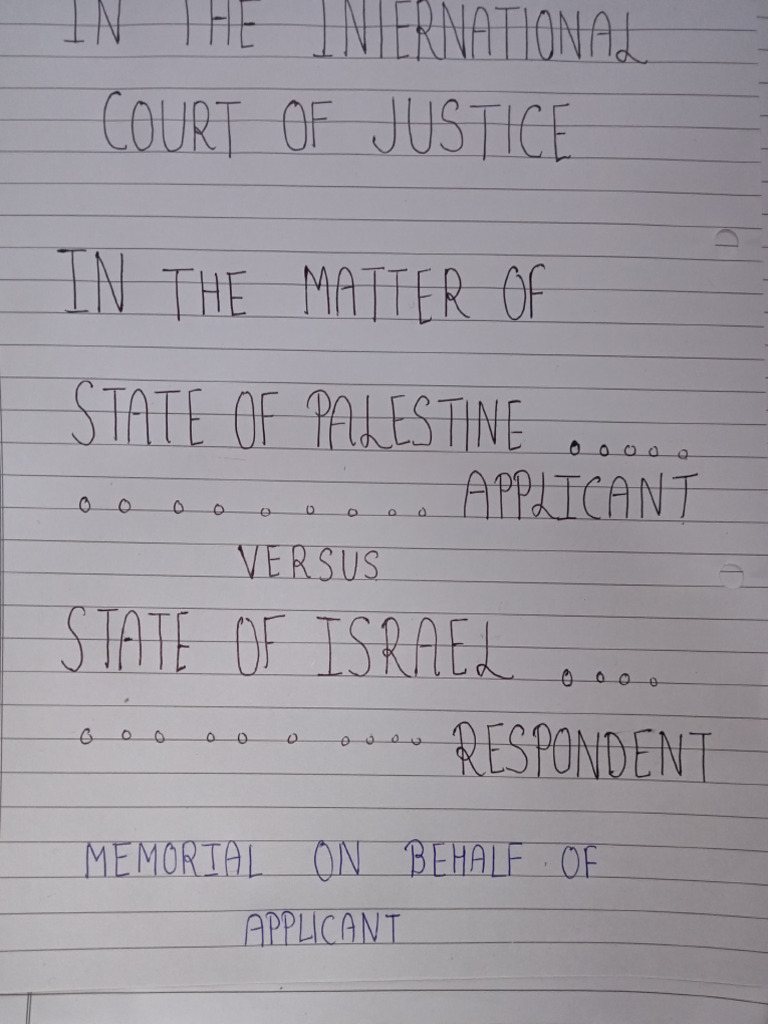 IN THE INTERNATIONAL
COURT OF JUSTICE
IN THE MATTER OF
STATE OF PALESTINE .....
......... APPLICANT
VERSUS
STATE OF ISRAEL ....
.......... RESPONDENT
MEMORIAL ON BEHALF OF
APPLICANT